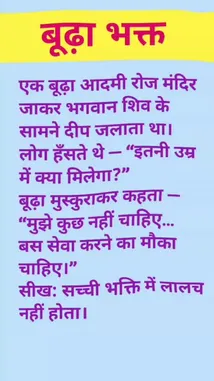 बूढ़ा भक्त
एक बूढ़ा आदमी रोज मंदिर
जाकर भगवान शिव के
सामने दीप जलाता था।
लोग हँसते थे — “इतनी उम्र
में क्या मिलेगा?”
बूढ़ा मुस्कुराकर कहता —
“मुझे कुछ नहीं चाहिए...
बस सेवा करने का मौका
चाहिए।”
सीख: सच्ची भक्ति में लालच
नहीं होता।